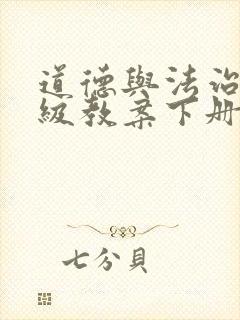 道德與法治
級教案下册
七分貝